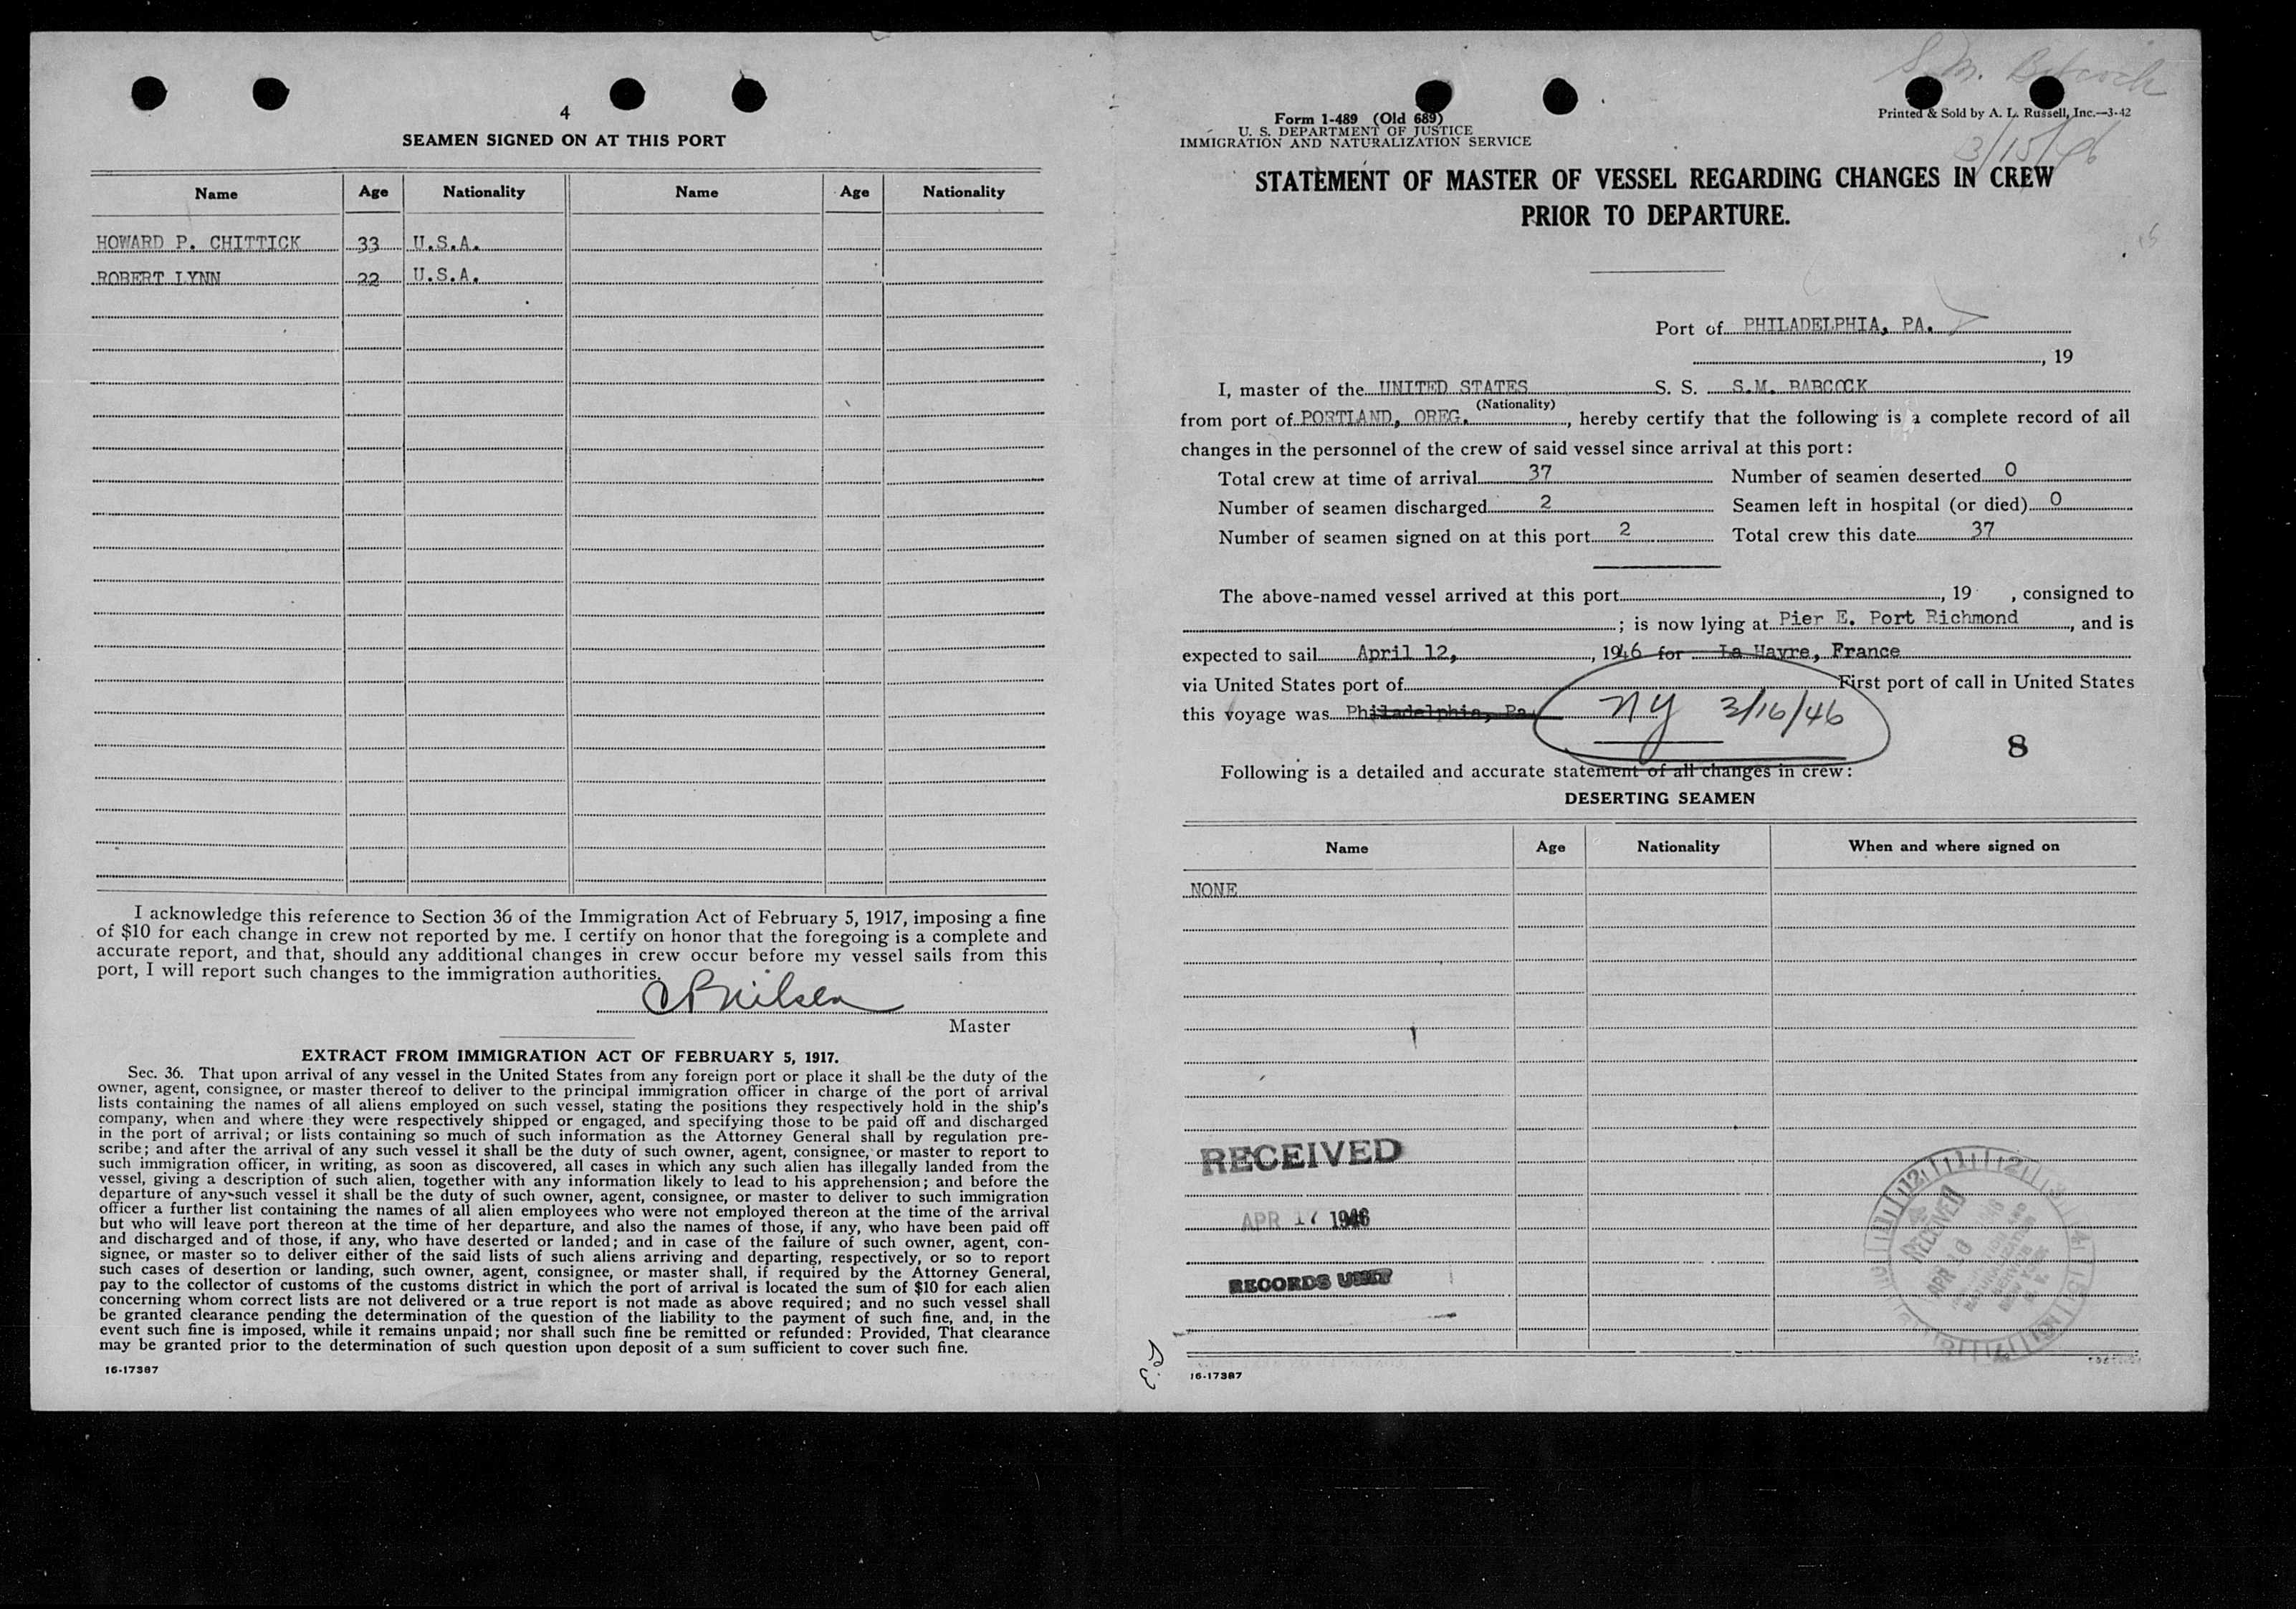 4
SEAMEN SIGNED ON AT THIS PORT
Name Age Nationality Name Age Nationality
HOWARD P. CHITTICK 33 U.S.A.
ROBERT LYNN 22 U.S.A.
I acknowledge this reference to Section 36 of the Immigration Act of February 5, 1917, imposing a fine
of $10 for each change in crew not reported by me. I certify on honor that the foregoing is a complete and
accurate report, and that, should any additional changes in crew occur before my vessel sails from this
port, I will report such changes to the immigration authorities.
Master
EXTRACT FROM IMMIGRATION ACT OF FEBRUARY 5, 1917.
Sec. 36. That upon arrival of any vessel in the United States from any foreign port or place it shall be the duty of the
owner, agent, consignee, or master thereof to deliver to the principal immigration officer in charge of the port of arrival
lists containing the names of all aliens employed on such vessel, stating the positions they respectively hold in the ship's
company, when and where they were respectively shipped or engaged, and specifying those to be paid off and discharged
in the port of arrival; or lists containing so much of such information as the Attorney General shall by regulation pre-
scribe; and after the arrival of any such vessel it shall be the duty of such owner, agent, consignee, or master to report to
such immigration officer, in writing, as soon as discovered, all cases in which any such alien has illegally landed from the
vessel, giving a description of such alien, together with any information likely to lead to his apprehension; and before the
departure of any such vessel it shall be the duty of such owner, agent, consignee, or master to deliver to such immigration
officer a further list containing the names of all alien employees who were not employed thereon at the time of the arrival
but who will leave port thereon at the time of her departure, and also the names of those, if any, who have been paid off
and discharged and of those, if any, who have deserted or landed; and in case of the failure of such owner, agent, con-
signee, or master so to deliver either of the said lists of such aliens arriving and departing, respectively, or so to report
such cases of desertion or landing, such owner, agent, consignee, or master shall, if required by the Attorney General,
pay to the collector of customs of the customs district in which the port of arrival is located the sum of $10 for each alien
concerning whom correct lists are not delivered or a true report is not made as above required; and no such vessel shall
be granted clearance pending the determination of the question of the liability to the payment of such fine, and, in the
event such fine is imposed, while it remains unpaid; nor shall such fine be remitted or refunded: Provided, That clearance
may be granted prior to the determination of such question upon deposit of a sum sufficient to cover such fine.
16-17387
S. M. Babcock
3/15/46
Form 1-489 (Old 689)
U. S. DEPARTMENT OF JUSTICE
IMMIGRATION AND NATURALIZATION SERVICE
Printed & Sold by A. L. Russell, Inc.—3-42
STATEMENT OF MASTER OF VESSEL REGARDING CHANGES IN CREW
PRIOR TO DEPARTURE.
Port of PHILADELPHIA, PA.
, 19
I, master of the UNITED STATES S. S. S.M. BABCOCK
(Nationality)
from port of PORTLAND, OREG. , hereby certify that the following is a complete record of all
changes in the personnel of the crew of said vessel since arrival at this port:
Total crew at time of arrival 37 Number of seamen deserted 0
Number of seamen discharged 2 Seamen left in hospital (or died) 0
Number of seamen signed on at this port 2 Total crew this date 37
The above-named vessel arrived at this port , 19 , consigned to
; is now lying at Pier E. Port Richmond , and is
expected to sail April 12, , 1946 for La Havre, France
via United States port of First port of call in United States
this voyage was Philadelphia, Pa. NY 3/16/46
8
Following is a detailed and accurate statement of all changes in crew:
DESERTING SEAMEN
Name Age Nationality When and where signed on
NONE
RECEIVED
APR 17 1946
RECORDS UNIT
RECEIVED
APR 16
16-17387